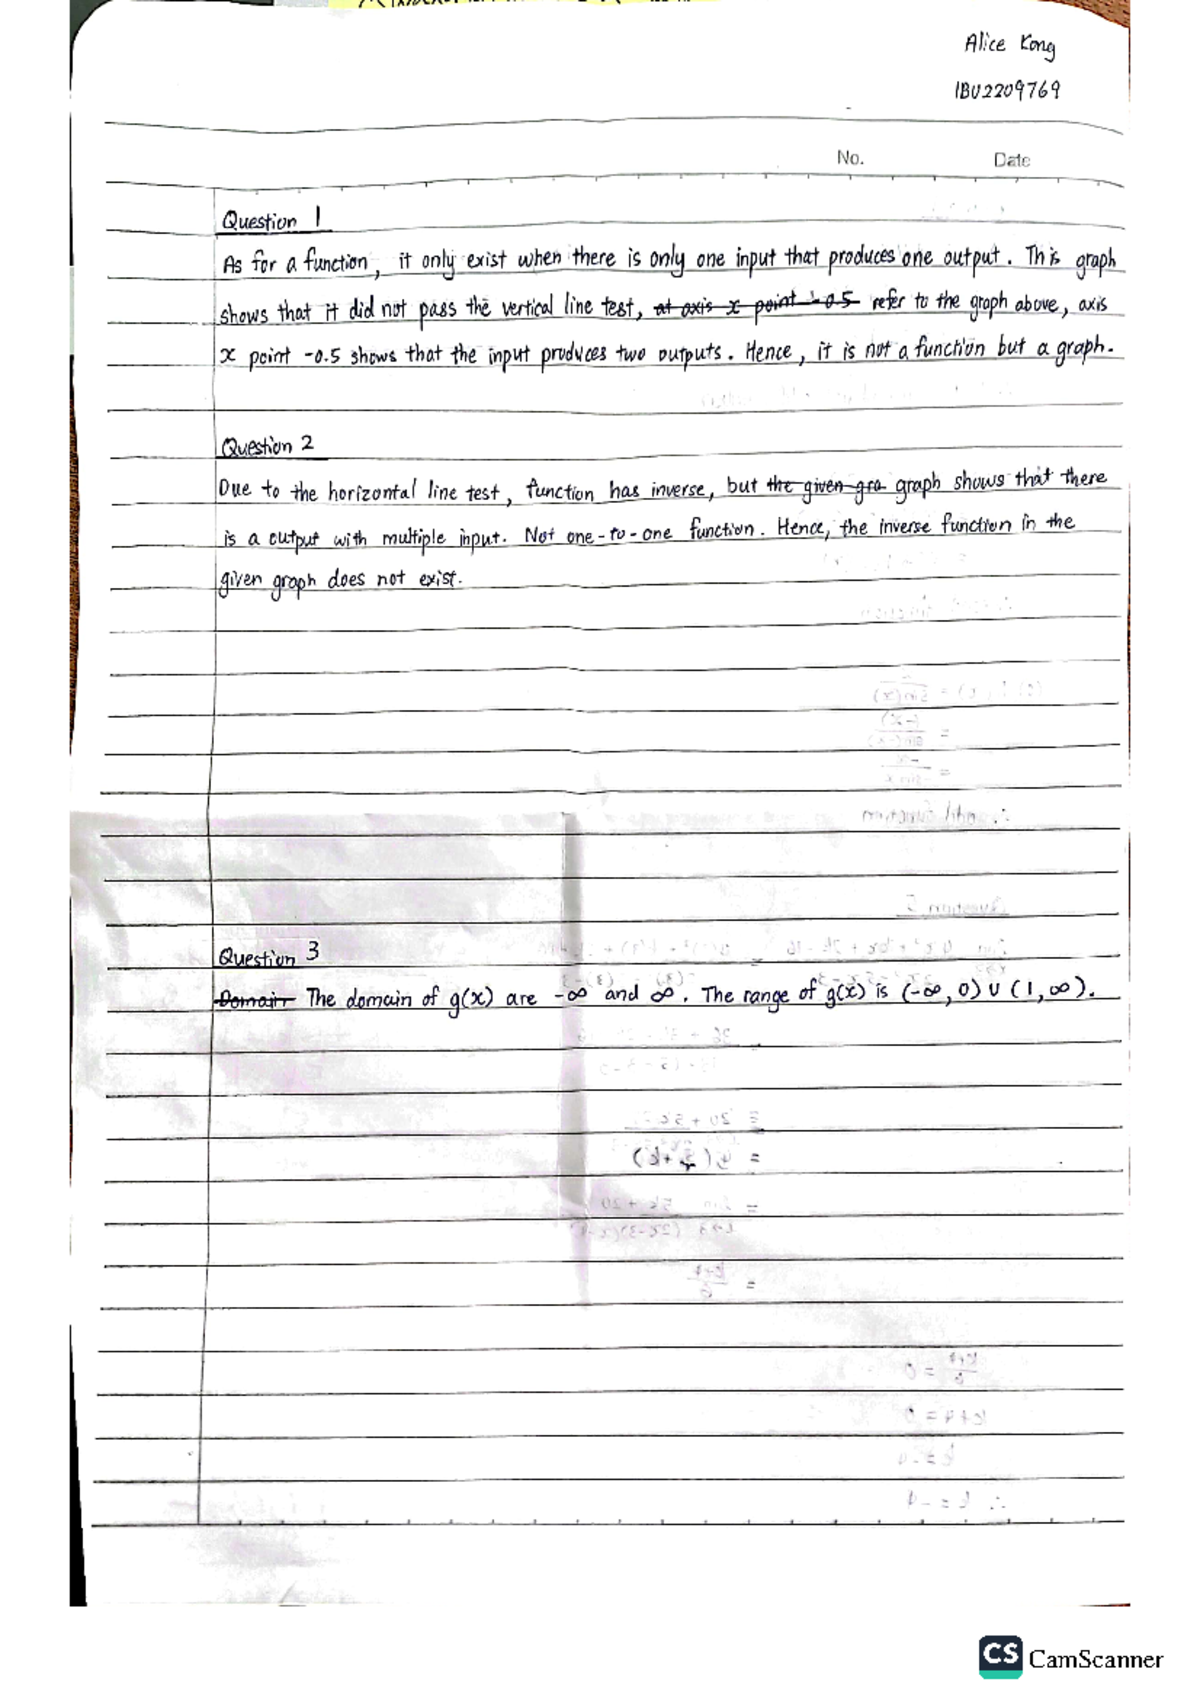 Alice Kong
IBU2209769
No. Date
Question 1
As for a function, it only exist when there is only one input that produces one output. This graph
shows that it did not pass the vertical line test, at axis x point -0.5 refer to the graph above, axis
x point -0.5 shows that the input produces two outputs. Hence, it is not a function but a graph.
Question 2
Due to the horizontal line test, function has inverse, but the given gra graph shows that there
is a output with multiple input. Not one-to-one function. Hence, the inverse function in the
given graph does not exist.
Question 3
Domain The domain of g(x) are -∞ and ∞. The range of g(x) is (-∞, 0) ∪ (1, ∞).
CS CamScanner